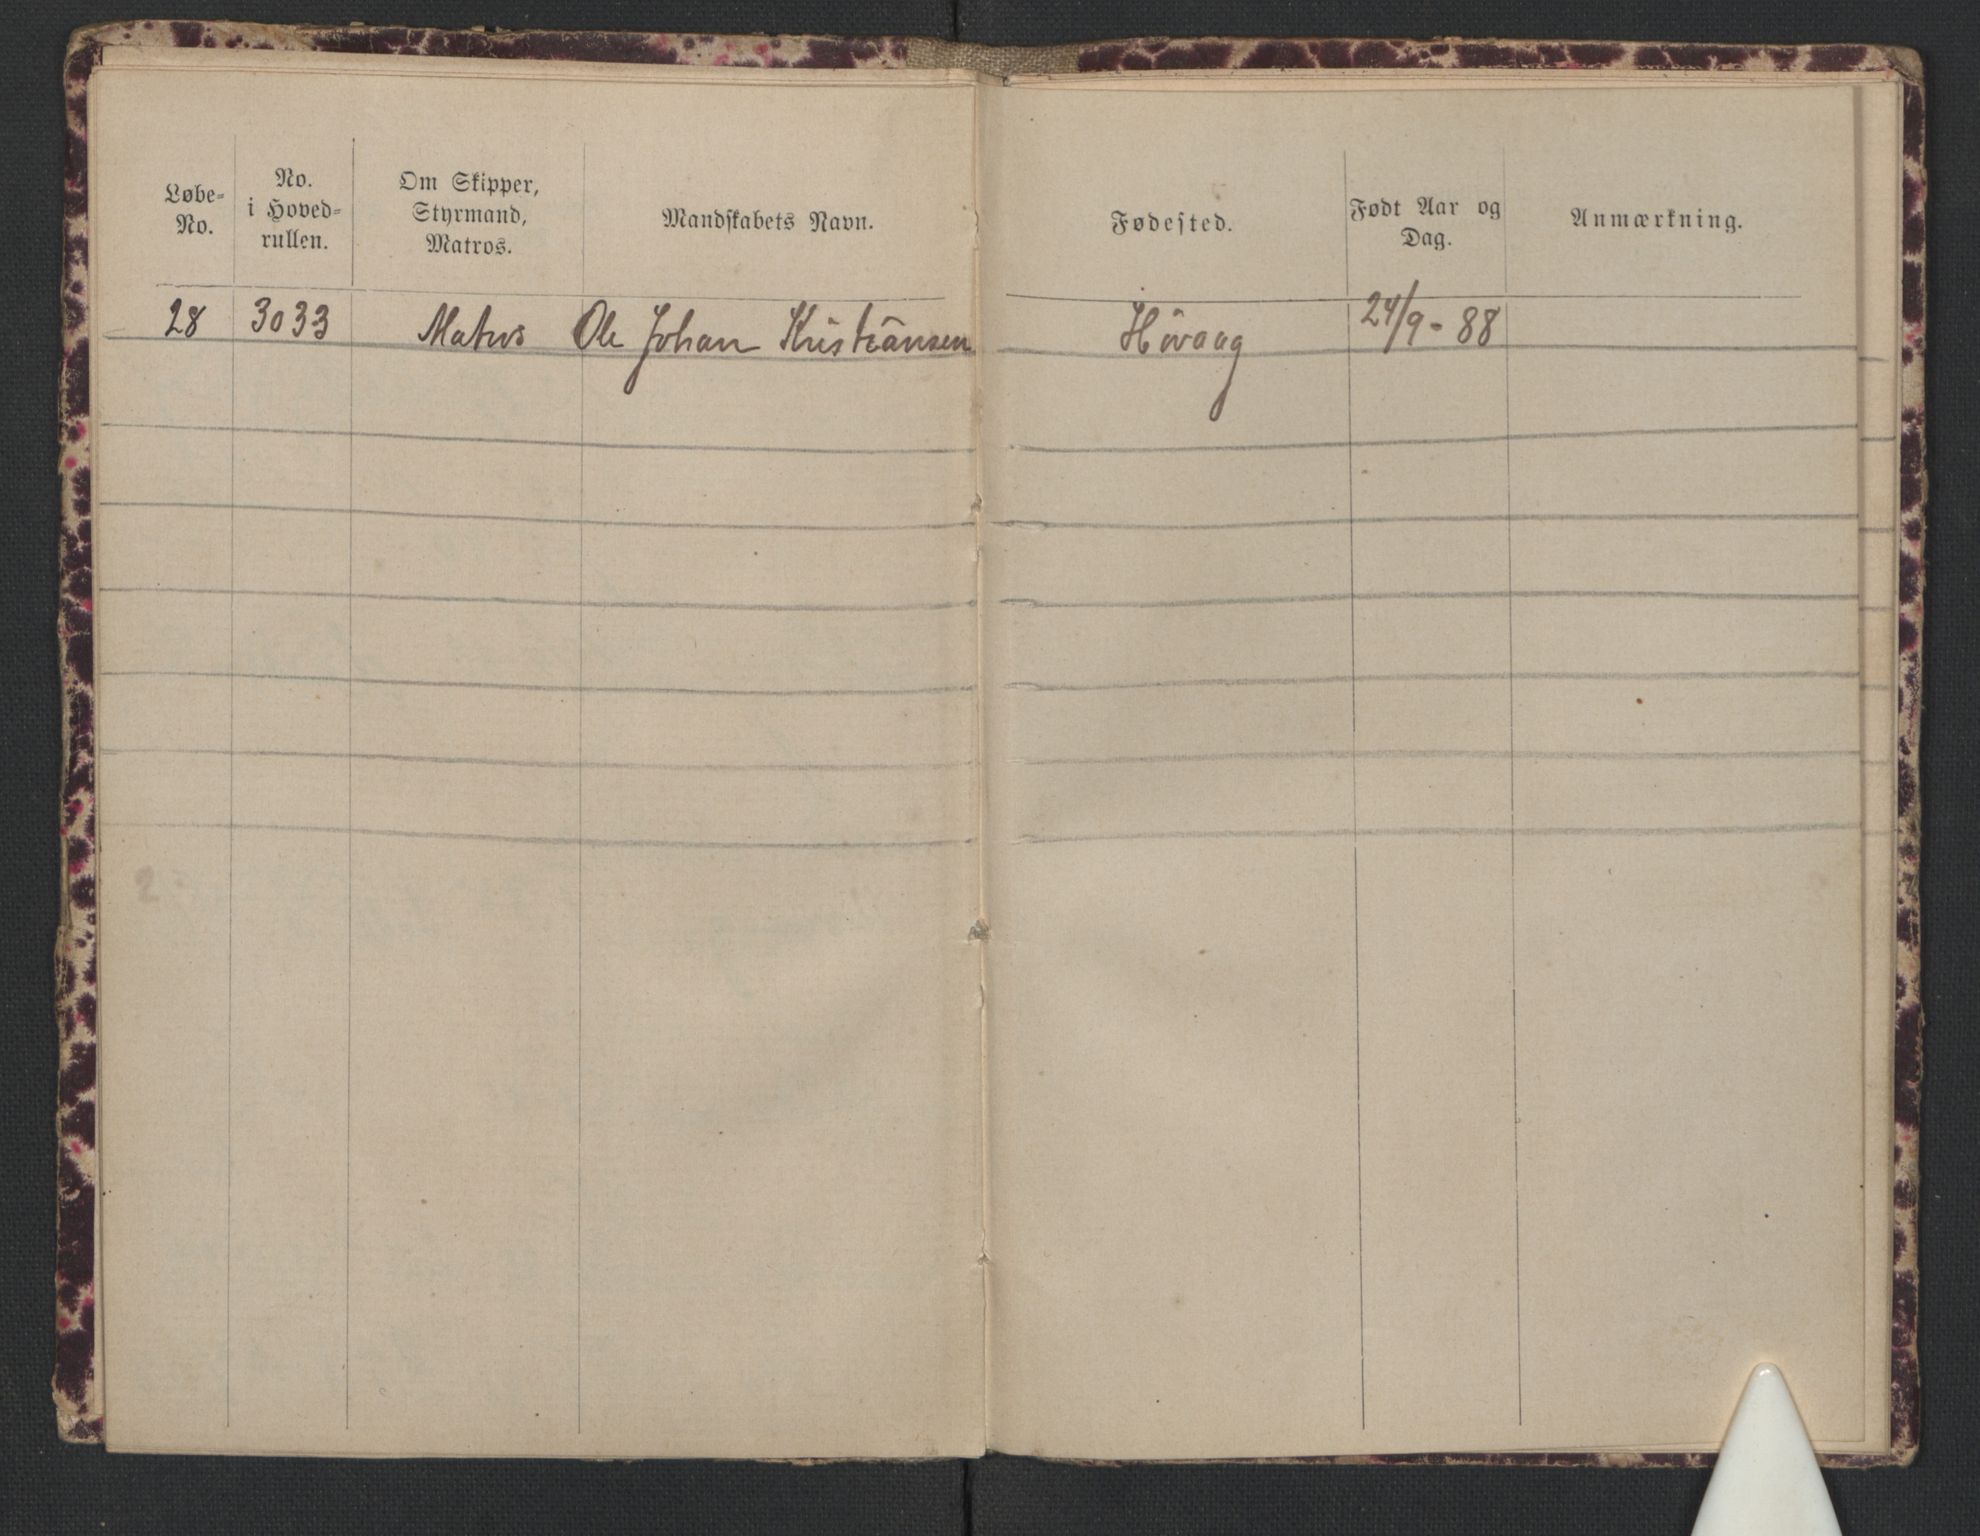 Løbe-No.
No. i Hoved-rullen.
Om Skipper, Styrmand, Matros.
Mandskabets Navn.
Fødested.
Født Aar og Dag.
Anmærkning.
28 3033 Matros Ole Johan Kristiansen Høvaag 24/9-88